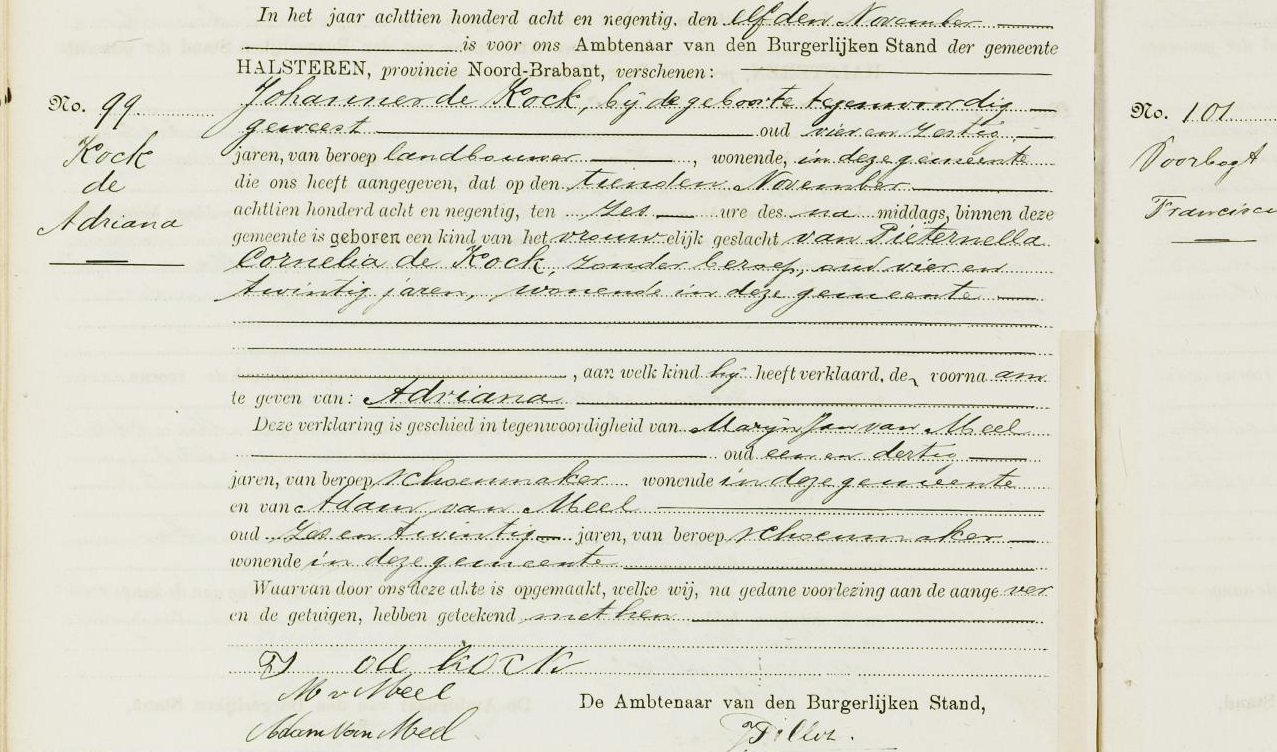 In het jaar achttien honderd acht en negentig, den elfden November
is voor ons Ambtenaar van den Burgerlijken Stand der gemeente
HALSTEREN, provincie Noord-Brabant, verschenen:
No. 99
Kock
de
Adriana
Johannes de Kock, bij de geboorte tegenwoordig
geweest oud vier en zestig
jaren, van beroep landbouwer, wonende, in deze gemeente
die ons heeft aangegeven, dat op den tienden November
achttien honderd acht en negentig, ten zes ure des na middags, binnen deze
gemeente is geboren een kind van het vrouwelijk geslacht van Pieternella
Cornelia de Kock, zonder beroep, oud vier en
twintig jaren, wonende in deze gemeente
, aan welk kind hij heeft verklaard, de voorna am
te geven van: Adriana
Deze verklaring is geschied in tegenwoordigheid van Marijn Jan van Meel
oud een en dertig
jaren, van beroep schoenmaker wonende in deze gemeente
en van Adam van Meel
oud zes en twintig jaren, van beroep schoenmaker
wonende in deze gemeente
Waarvan door ons deze akte is opgemaakt, welke wij, na gedane voorlezing aan de aange ver
en de getuigen, hebben geteekend met hen
J de kock
M v Meel
Adam van Meel
De Ambtenaar van den Burgerlijken Stand,
No. 101